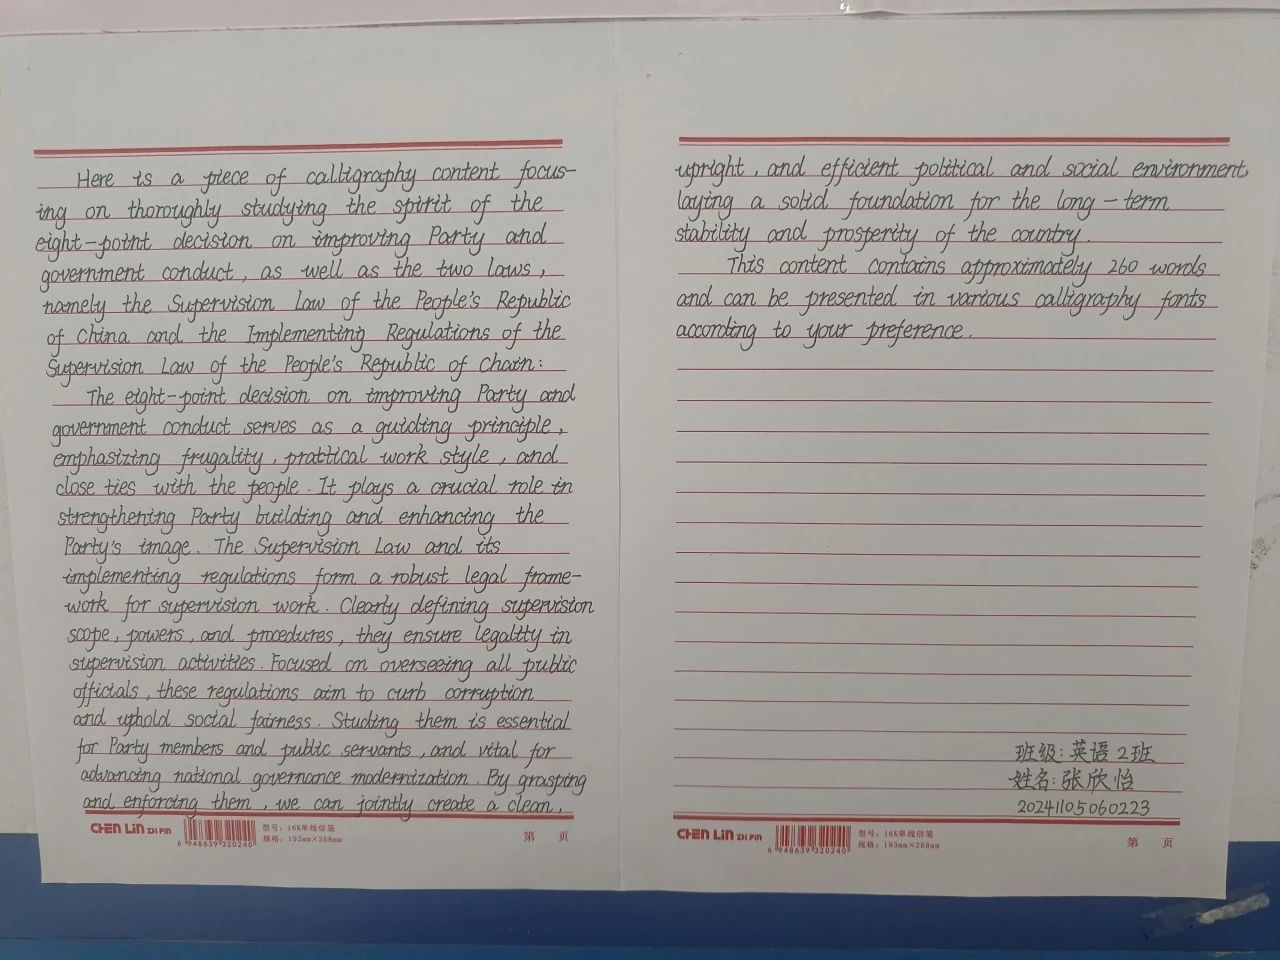 Here is a piece of calligraphy content focus-
ing on thoroughly studying the spirit of the
eight-point decision on improving Party and
government conduct, as well as the two laws,
namely the Supervision Law of the People's Republic
of China and the Implementing Regulations of the
Supervision Law of the People's Republic of Chain:
The eight-point decision on improving Party and
government conduct serves as a guiding principle,
emphasizing frugality, prattical work style, and
close ties with the people. It plays a crucial role in
strengthening Party building and enhancing the
Party's image. The Supervision Law and its
implementing regulations form a robust legal frame-
work for supervision work. Clearly defining supervision
scope, powers, and procedures, they ensure legality in
supervision activities. Focused on overseeing all public
officials, these regulations aim to curb corruption
and uphold social fairness. Studing them is essential
for Party members and public servants, and vital for
advancing national governance modernization. By grasping
and enforcing them, we can jointly create a clean,
CHEN LIN ZH PIN
6 948639 320240
型号：16K单线信笺
规格：193mm×268mm
第 页
upright, and efficient political and social environment,
laying a solid foundation for the long-term
stability and prosperity of the country.
This content contains approximately 260 words
and can be presented in various calligraphy fonts
according to your preference.
班级：英语2班
姓名：张欣怡
20241105060223
CHEN LIN ZH PIN
6 948639 320240
型号：16K单线信笺
规格：193mm×268mm
第 页